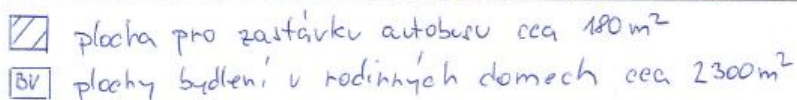 plocha pro zastávku autobusu cca 180 m²
BV plochy bydlení v rodinných domech cca 2300 m²